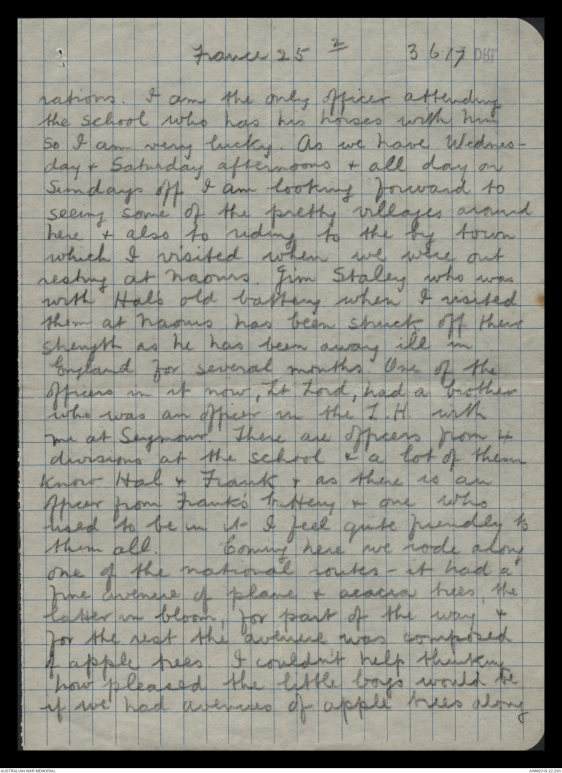 France 25 2 3 6 17 DRL
rations. I am the only officer attending
the school who has his horses with him
so I am very lucky. As we have Wednes-
day & Saturday afternoons & all day on
Sundays off I am looking forward to
seeing some of the pretty villages around
here & also to riding to the big town
which I visited when we were out
resting at Naours. Jim Staley who was
with Hal's old battery when I visited
them at Naours has been struck off their
strength as he has been away ill in
England for several months. One of the
officers in it now, Lt Lord, had a brother
who was an officer in the L.H. with
me at Seymour. There are officers from 4
divisions at the school & a lot of them
know Hal & Frank & as there is an
officer from Frank's battery & one who
used to be in it I feel quite friendly to
them all. Coming here we rode along
one of the national routes - it had a
fine avenue of plane & acacia trees, the
latter in bloom, for part of the way &
for the rest the avenue was composed
of apple trees. I couldn't help thinking
how pleased the little boys would be
if we had avenues of apple trees along
AUSTRALIAN WAR MEMORIAL